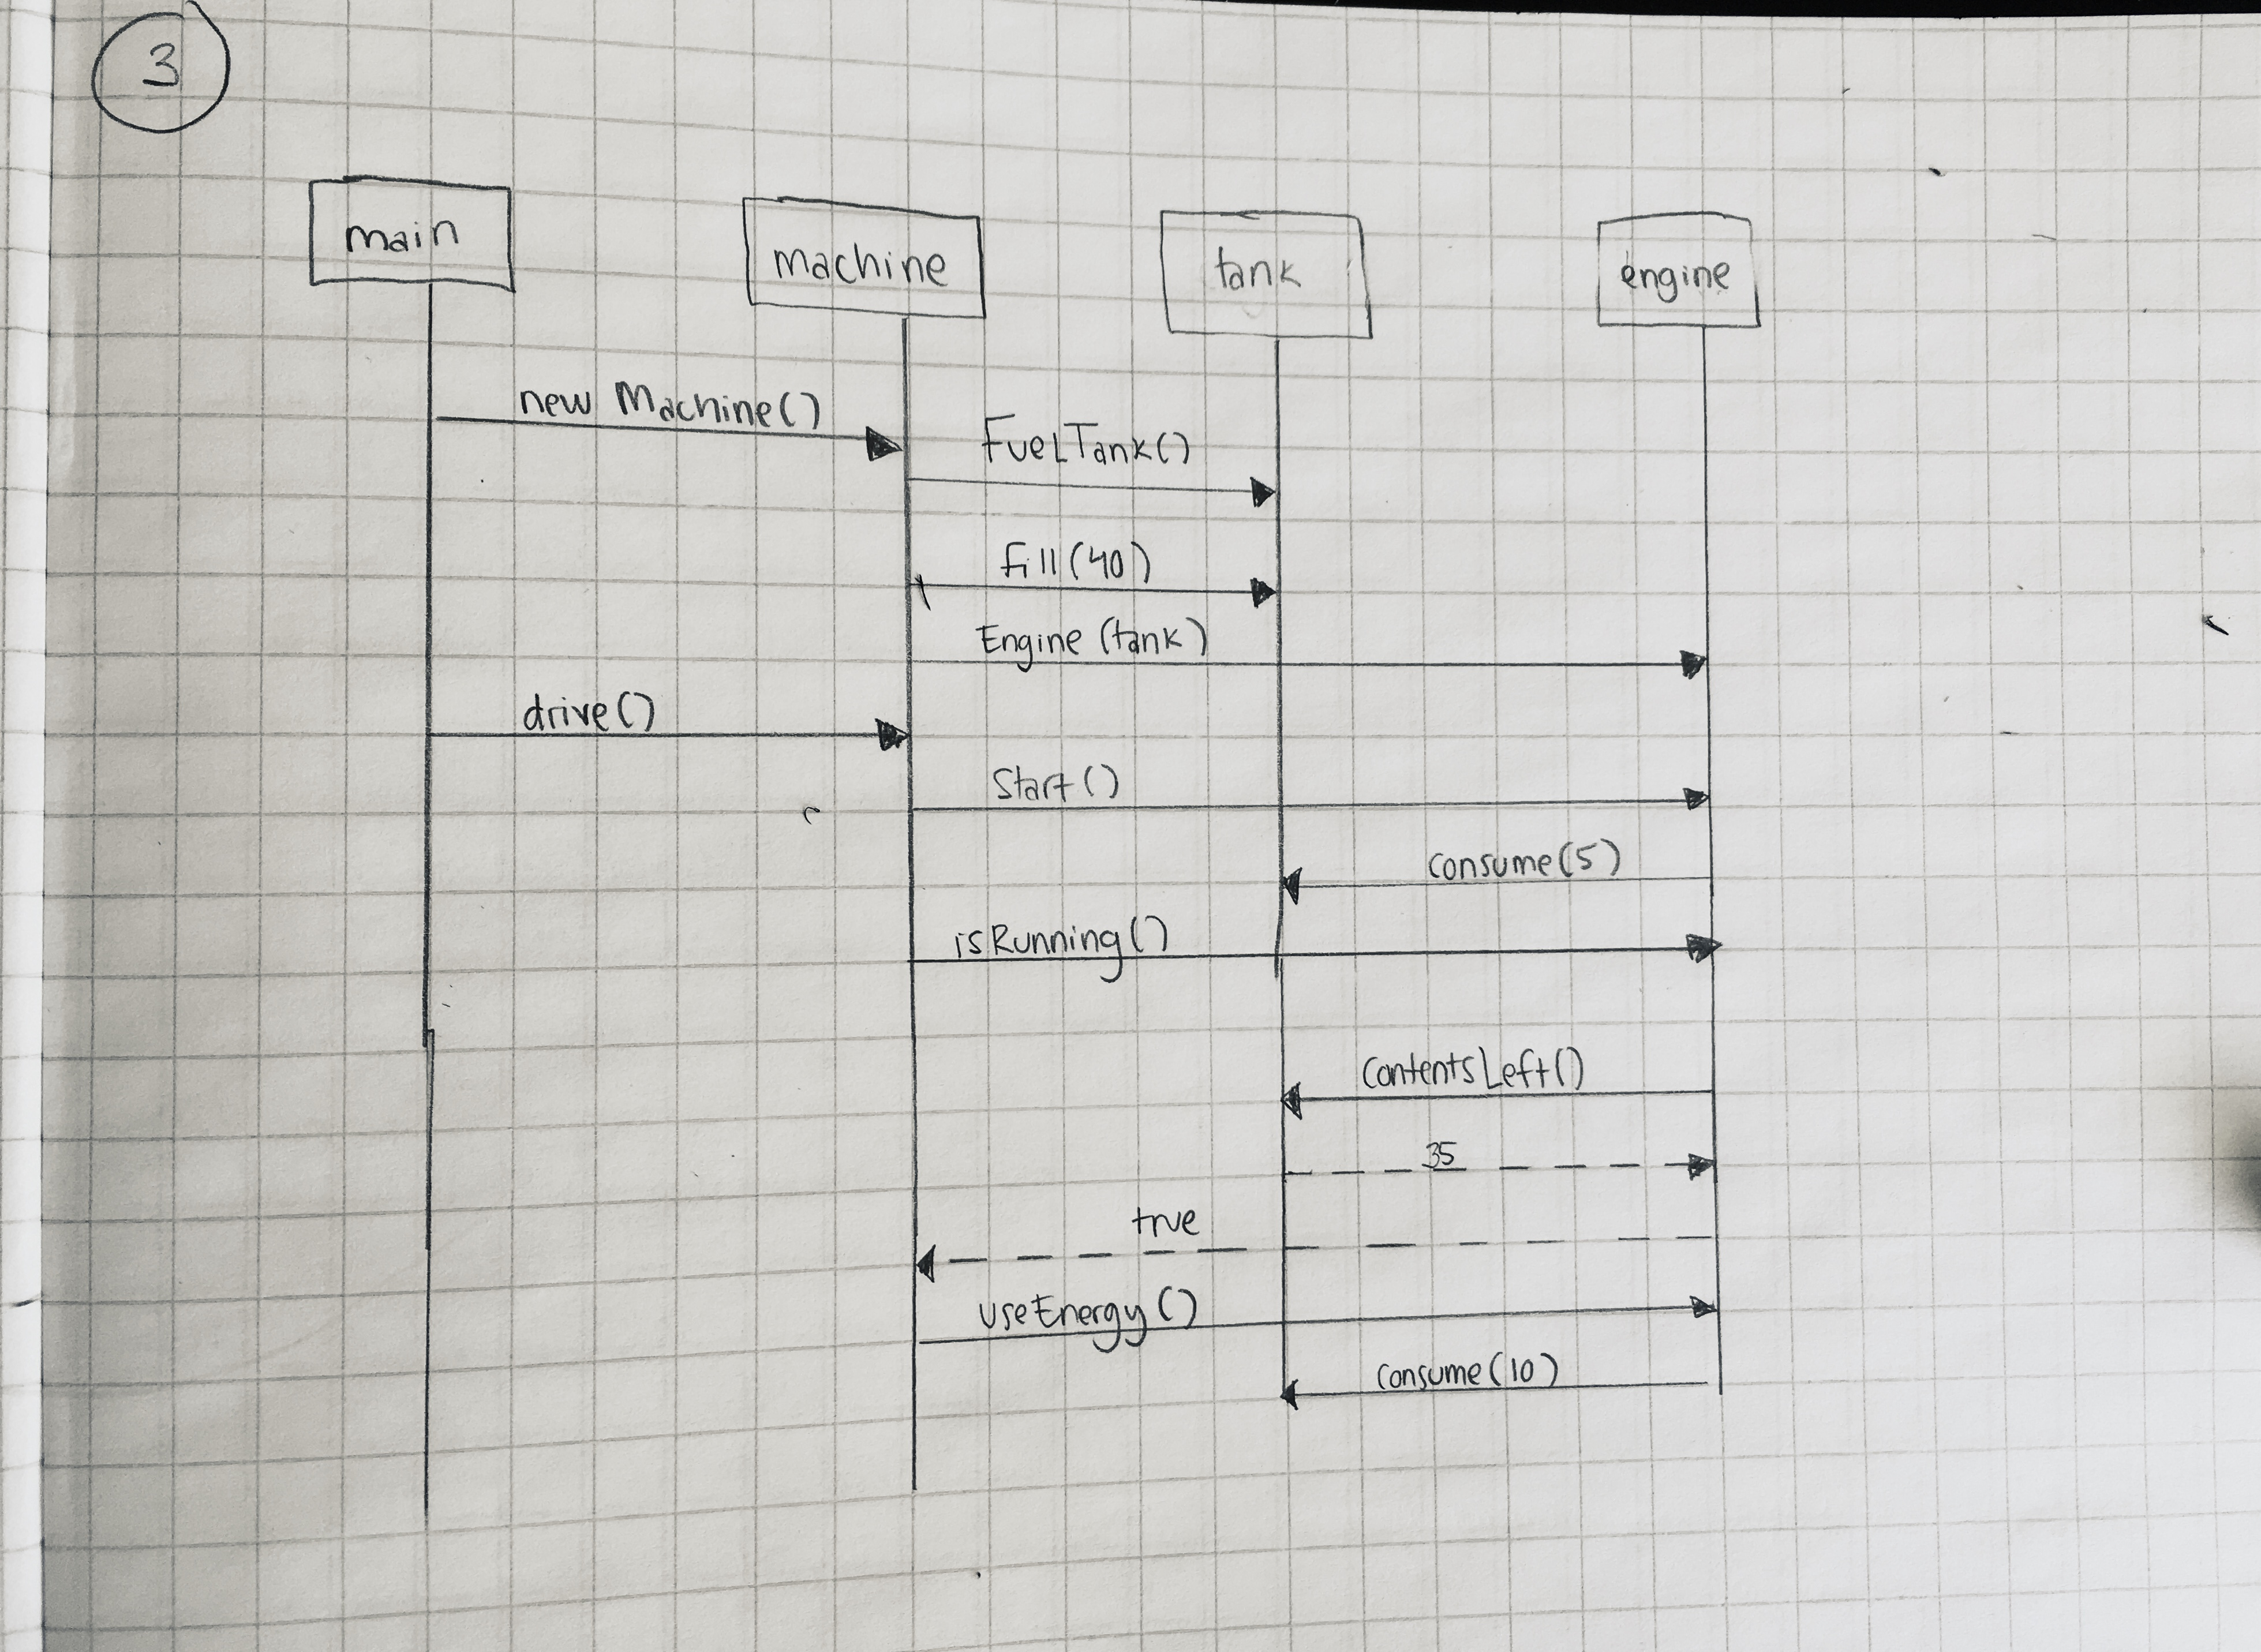 3
main
machine
tank
engine
new Machine()
FuelTank()
fill(40)
Engine (tank)
drive()
Start()
consume(5)
isRunning()
contentsLeft()
35
true
useEnergy()
consume(10)